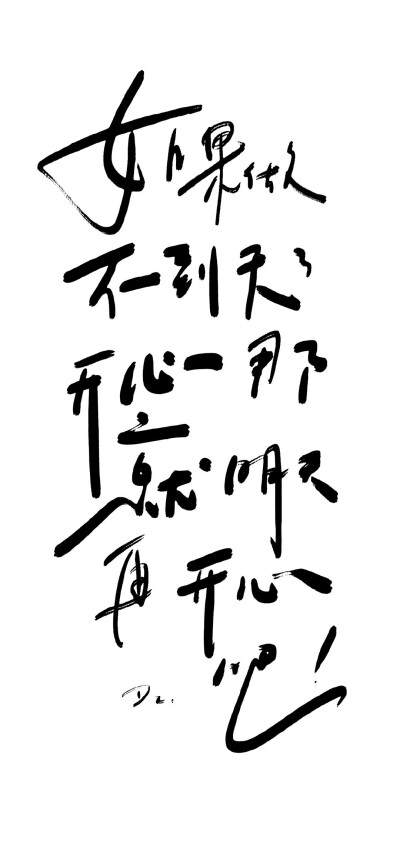 如果做
不到天天
开心那
么
就明天
再开心
吧！
Dz.